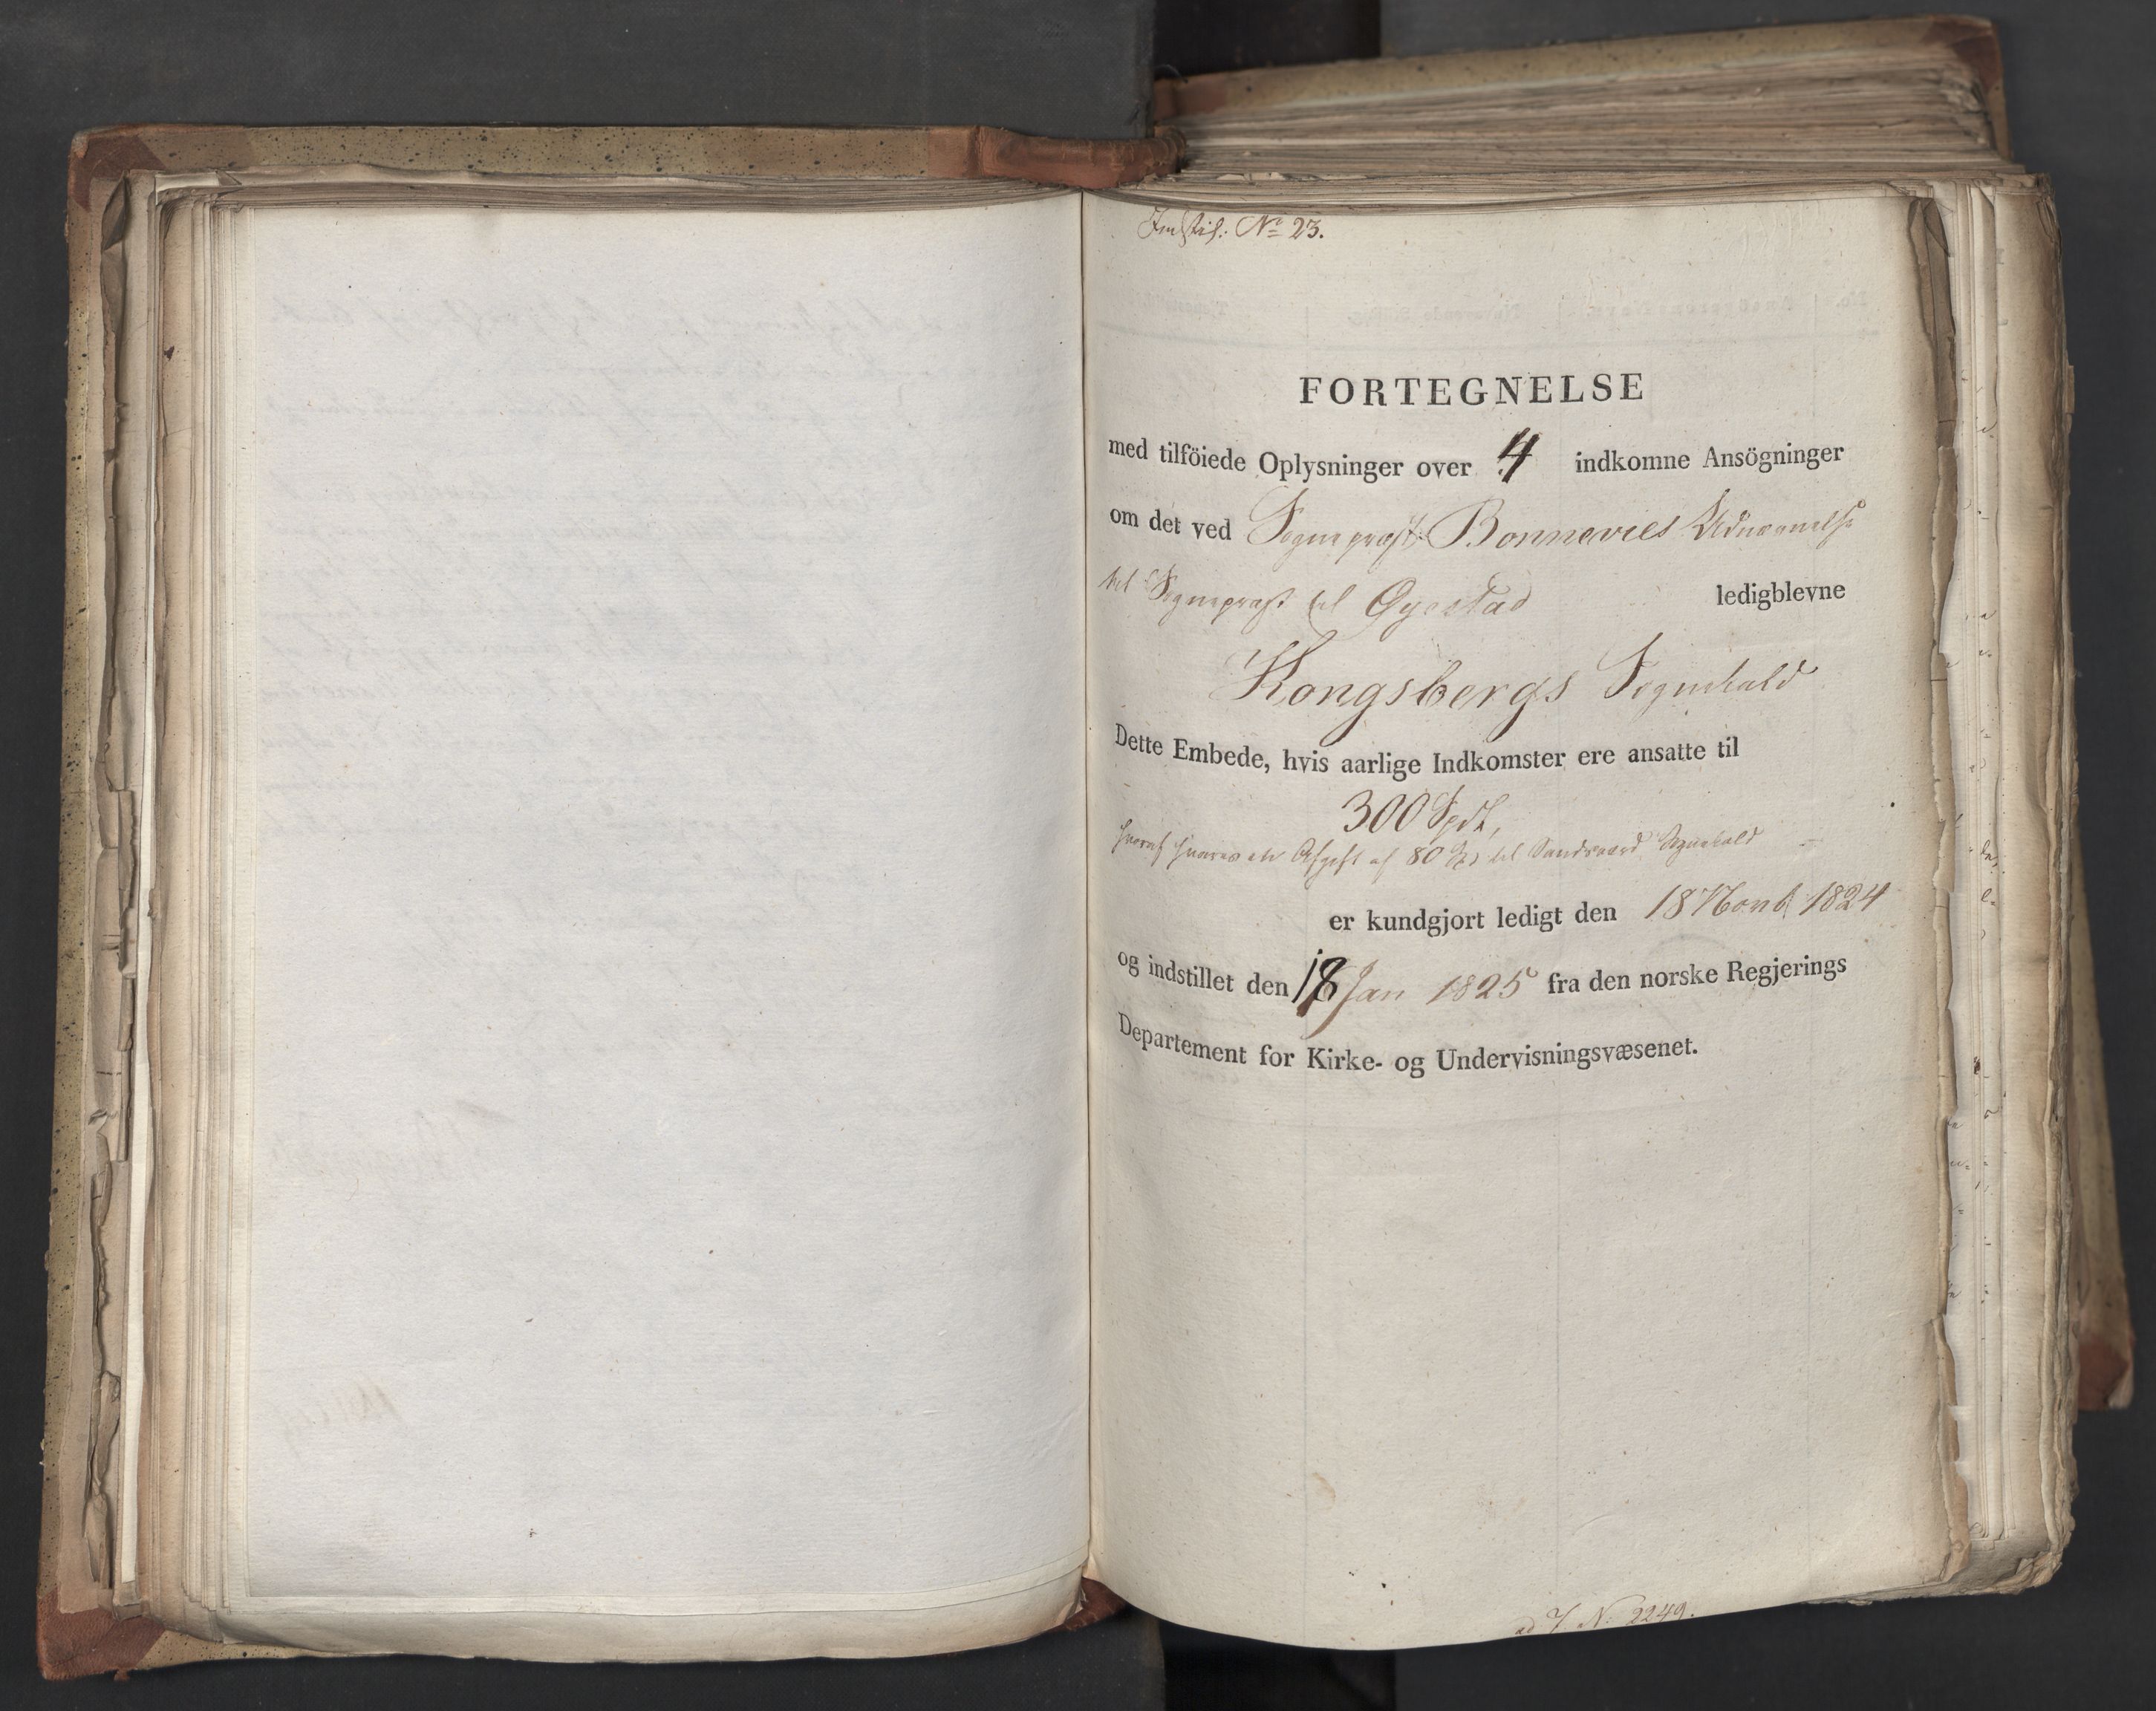 Indstil: No 23.
FORTEGNELSE
med tilföiede Oplysninger over 4 indkomne Ansögninger
om det ved Sognepræst Bonnevies Udnævnelse
til Sognepræst til Øyestad ledigblevne
Kongsbergs Sognekald
Dette Embede, hvis aarlige Indkomster ere ansatte til
300 Spd,
hvoraf svares en Afgift af 80 Spd til Sandsværd Sognekald
er kundgjort ledigt den 18 Novb 1824
og indstillet den 18 Jan 1825 fra den norske Regjerings
Departement for Kirke- og Undervisningsvæsenet.
ad J. N: 2249.